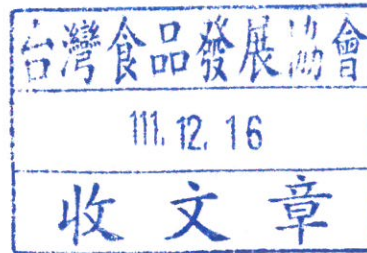 台灣食品發展協會
111.12.16
收文章